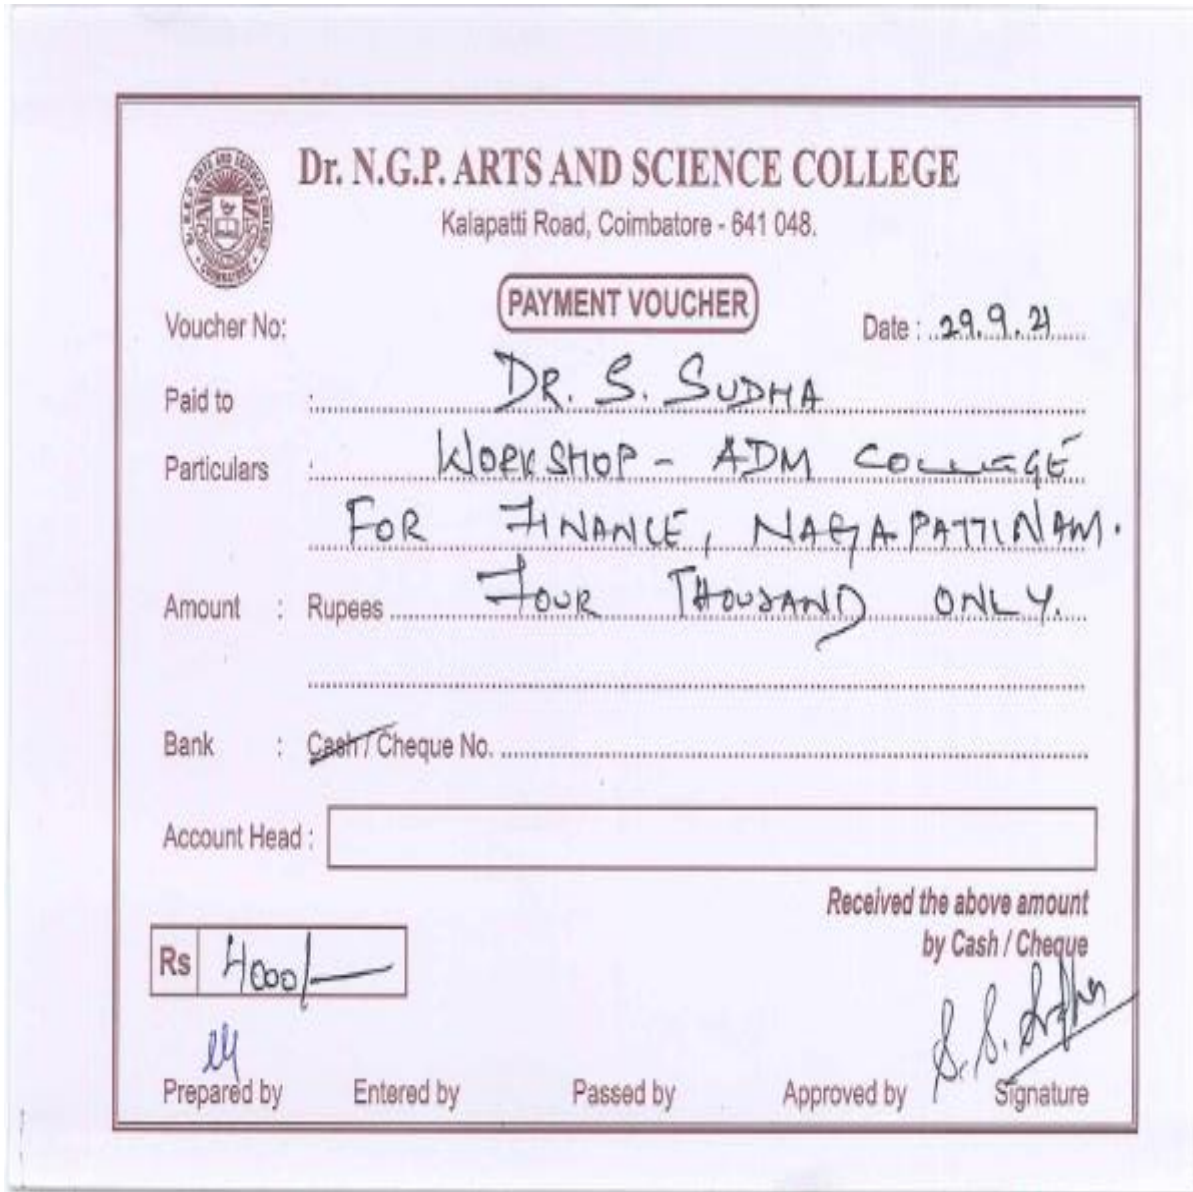 Dr. N.G.P. ARTS AND SCIENCE COLLEGE
Kalapatti Road, Coimbatore - 641 048.
PAYMENT VOUCHER
Voucher No:
Date : 29.9.21
Paid to : DR. S. SUDHA
Particulars : WORKSHOP - ADM COLLEGE
FOR FINANCE, NAGAPATTINAM.
Amount : Rupees FOUR THOUSAND ONLY.
Bank : Cash / Cheque No.
Account Head :
Received the above amount
by Cash / Cheque
Rs 4000/-
S. S. Sudha
Prepared by Entered by Passed by Approved by Signature